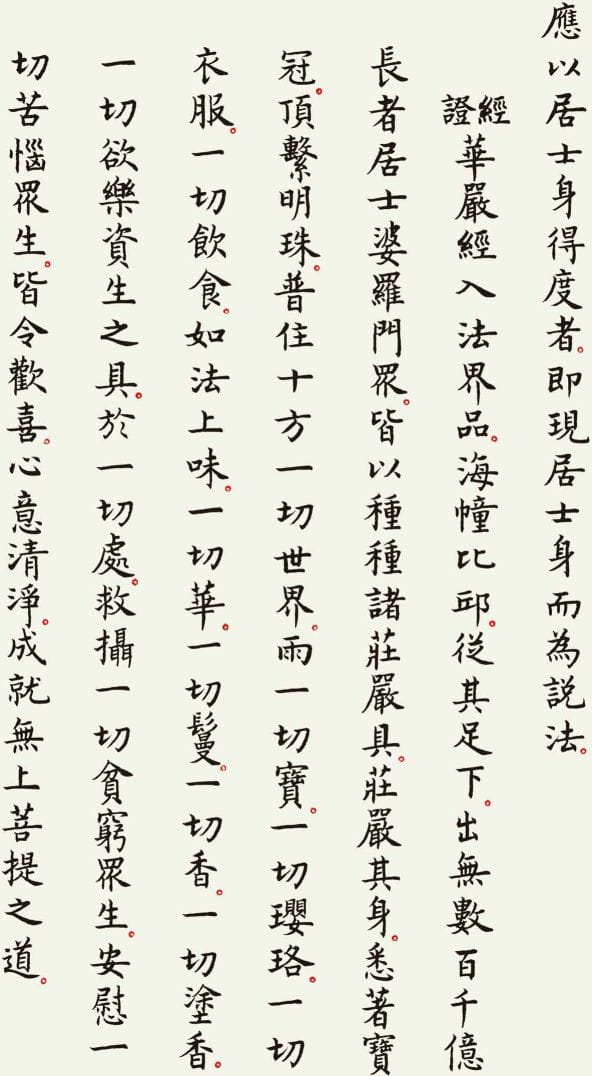 應以居士身得度者。即現居士身而為說法。
經證 華嚴經入法界品。海幢比邱。從其足下。出無數百千億
長者居士婆羅門眾。皆以種種諸莊嚴具。莊嚴其身。悉著寶
冠。頂繫明珠。普住十方一切世界。雨一切寶。一切瓔珞。一切
衣服。一切飲食。如法上味。一切華。一切鬘。一切香。一切塗香。
一切欲樂資生之具。於一切處。救攝一切貧窮眾生。安慰一
切苦惱眾生。皆令歡喜。心意清淨。成就無上菩提之道。